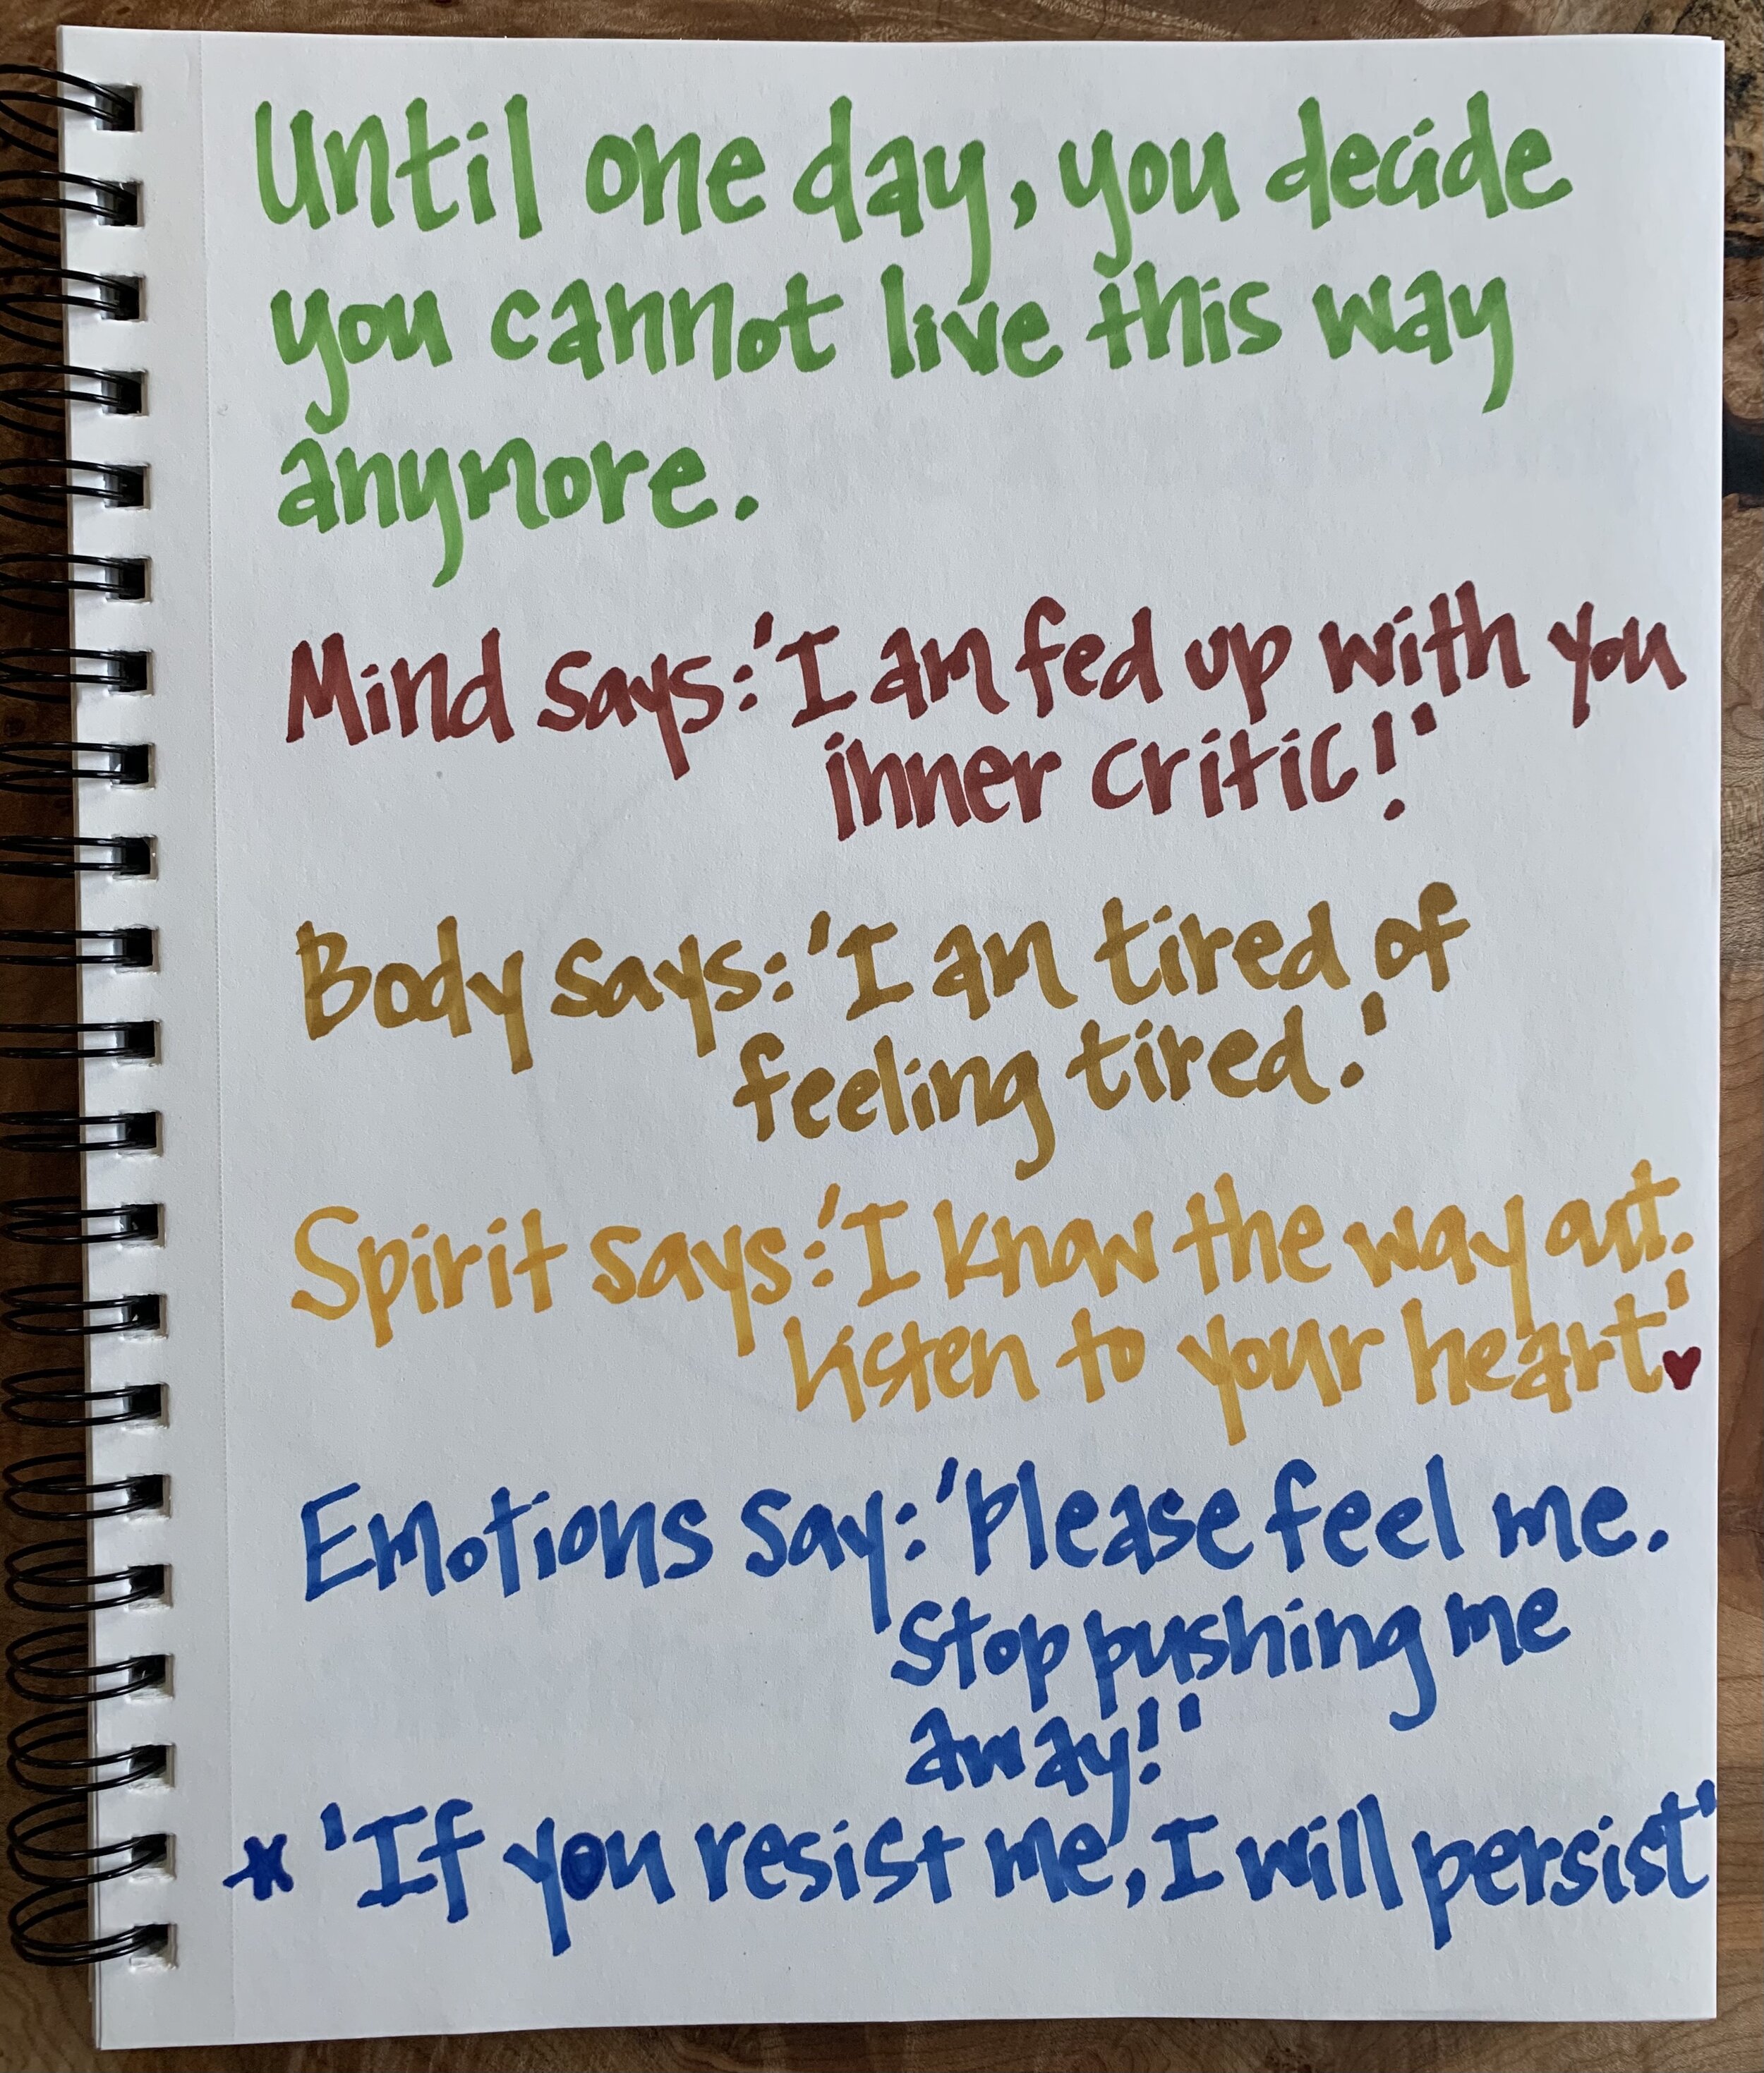 Until one day, you decide
you cannot live this way
anymore.
Mind says: 'I am fed up with you
inner critic!'
Body says: 'I am tired of
feeling tired.'
Spirit says: 'I know the way out.
Listen to your heart'♥
Emotions say: 'Please feel me.
Stop pushing me
away!'
* 'If you resist me, I will persist'